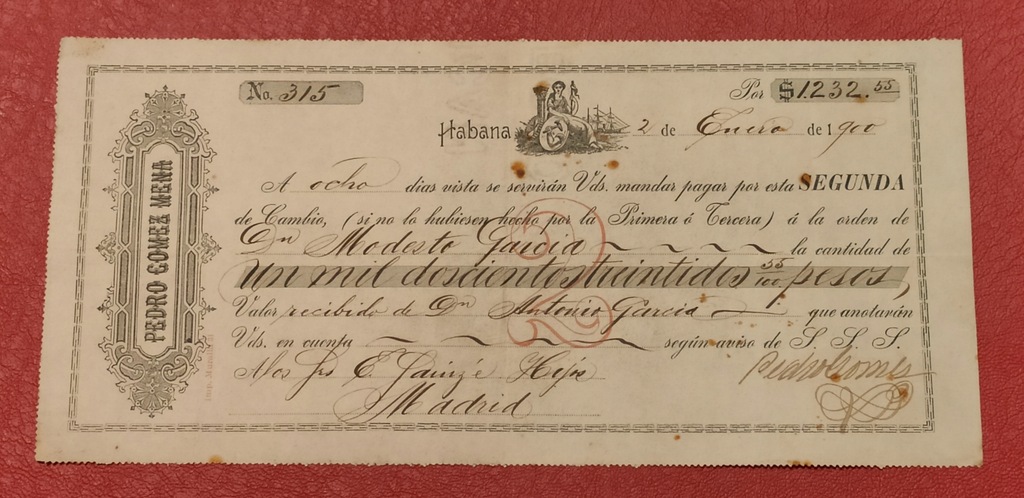 PEDRO GOMEZ MENA
No. 315
Por $1.232.55
Habana 2 de Enero de 1900
A ocho dias vista se servirán Vds. mandar pagar por esta SEGUNDA
de Cambio, (si no lo hubiesen hecho por la Primera ó Tercera) á la orden de
Dn Modesto Garcia la cantidad de
Un mil doscientos treintidos 55/100 pesos,
Valor recibido de Dn Antonio Garcia que anotarán
Vds. en cuenta según aviso de S. S. S.
Pedro Gomez
Madrid